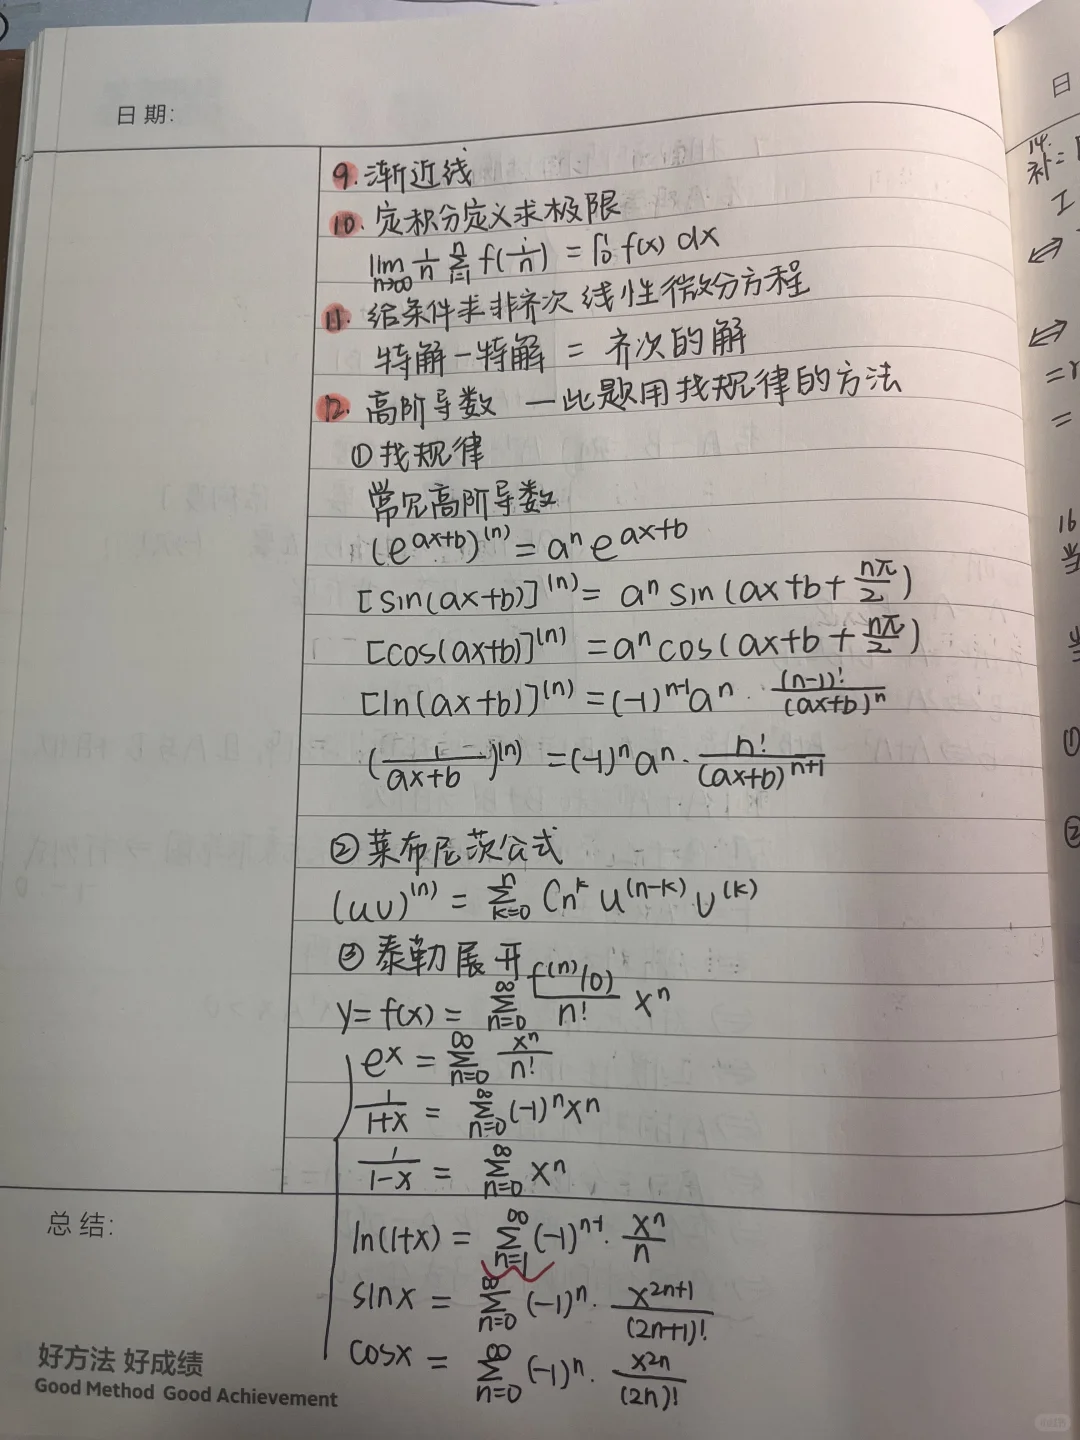 日期:
9. 渐近线
10. 定积分定义求极限
lim n→∞ 1/n Σ_{i=1}^{n} f(i/n) = ∫_0^1 f(x) dx
11. 给条件求非齐次线性微分方程
特解-特解 = 齐次的解
12. 高阶导数 —此题用找规律的方法
① 找规律
常见高阶导数
(e^{ax+b})^{(n)} = a^n e^{ax+b}
[sin(ax+b)]^{(n)} = a^n sin(ax+b+nπ/2)
[cos(ax+b)]^{(n)} = a^n cos(ax+b+nπ/2)
[ln(ax+b)]^{(n)} = (-1)^{n-1} a^n · (n-1)!/(ax+b)^n
(1/(ax+b))^{(n)} = (-1)^n a^n · n!/(ax+b)^{n+1}
② 莱布尼茨公式
(uv)^{(n)} = Σ_{k=0}^{n} C_n^k u^{(n-k)} v^{(k)}
③ 泰勒展开
y = f(x) = Σ_{n=0}^{∞} f^{(n)}(0)/n! x^n
e^x = Σ_{n=0}^{∞} x^n/n!
1/(1+x) = Σ_{n=0}^{∞} (-1)^n x^n
1/(1-x) = Σ_{n=0}^{∞} x^n
总结:
ln(1+x) = Σ_{n=1}^{∞} (-1)^{n-1} · x^n/n
sinx = Σ_{n=0}^{∞} (-1)^n · x^{2n+1}/(2n+1)!
cosx = Σ_{n=0}^{∞} (-1)^n · x^{2n}/(2n)!
好方法 好成绩
Good Method Good Achievement
日
14.
补=
=
16
当
①
②